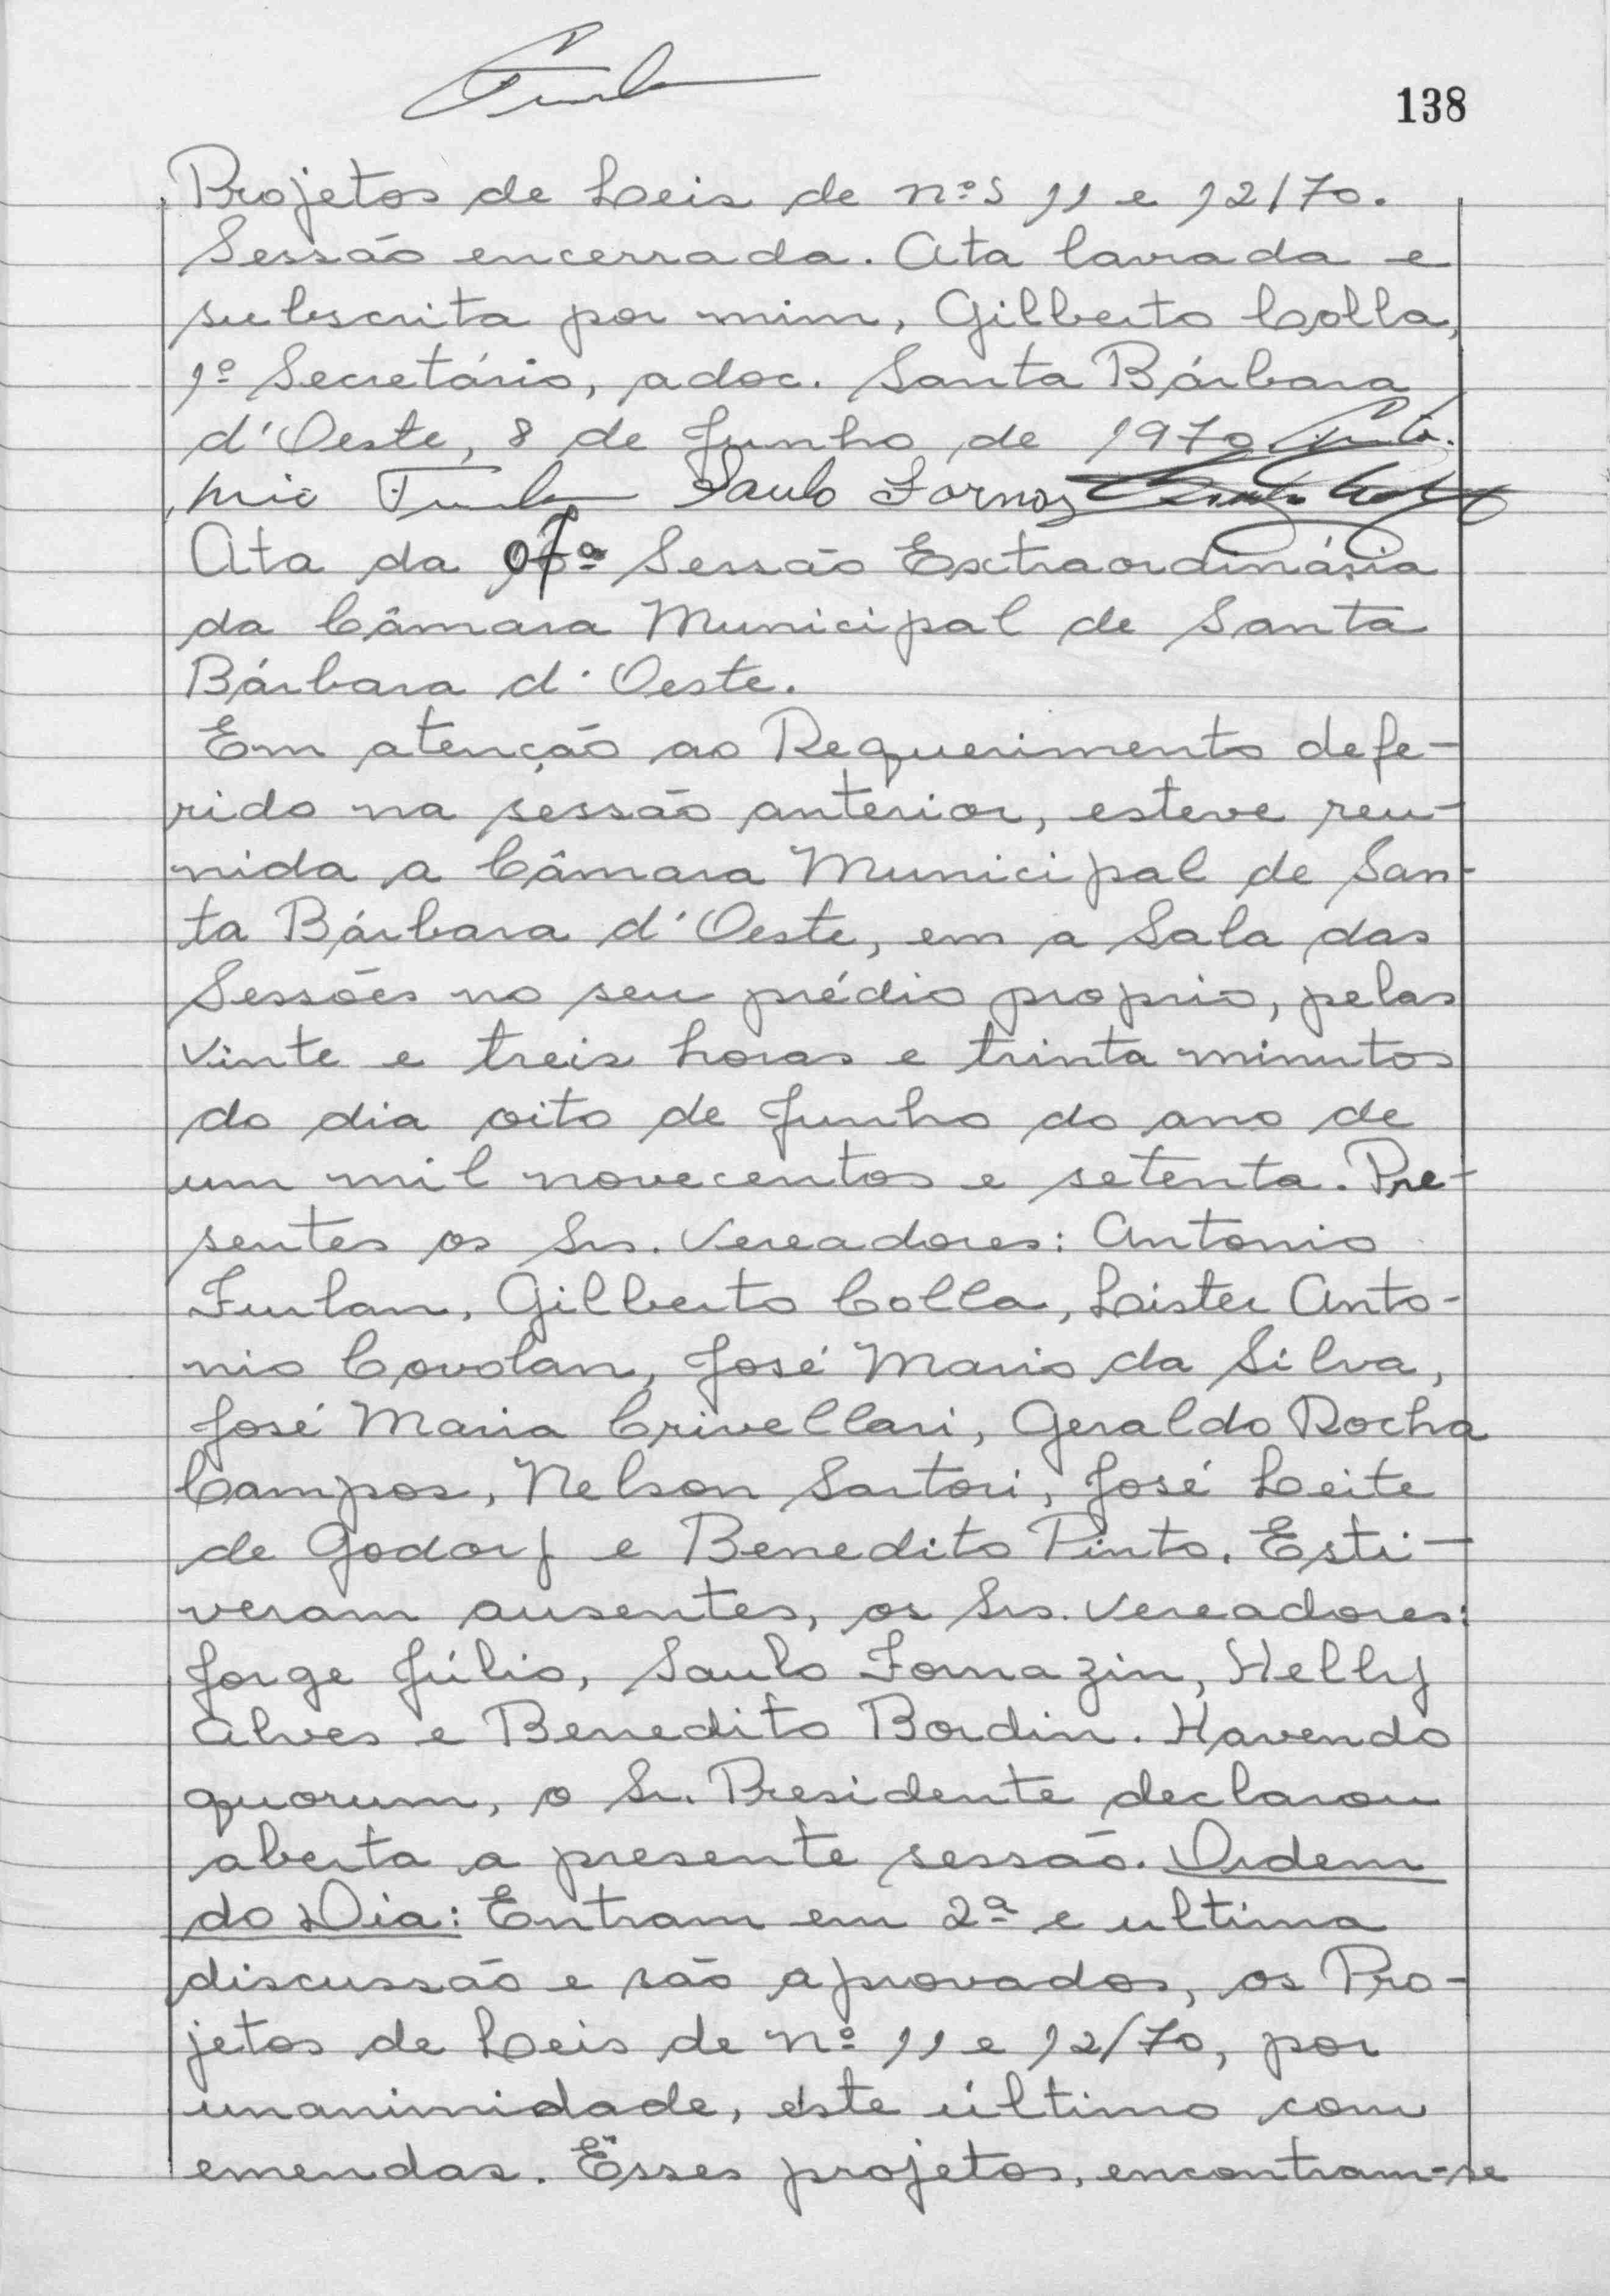 138
Projetos de Leis de nºs 11 e 12/70.
Sessão encerrada. Ata lavrada e
subscrita por mim, Gilberto Colla,
1º Secretário, adoc. Santa Bárbara
d'Oeste, 8 de Junho de 1970
Saulo Fornaz
Ata da 07ª Sessão Extraordinária
da Câmara Municipal de Santa
Bárbara d'Oeste.
Em atenção ao Requerimento defe-
rido na sessão anterior, esteve reu-
nida a Câmara Municipal de San-
ta Bárbara d'Oeste, em a Sala das
Sessões no seu prédio proprio, pelas
vinte e treis horas e trinta minutos
do dia oito de Junho do ano de
um mil novecentos e setenta. Pre-
sentes os Srs. Vereadores: Antonio
Furlan, Gilberto Colla, Leister Anto-
nio Covolan, José Mario da Silva,
José Maria Crivellari, Geraldo Rocha
Campos, Nelson Sartori, José Leite
de Godoy e Benedito Pinto. Esti-
veram ausentes, os Srs. Vereadores:
Jorge Júlio, Saulo Fornazin, Helly
Alves e Benedito Bordin. Havendo
quorum, o Sr. Presidente declarou
aberta a presente sessão. Ordem
do Dia: Entram em 2ª e ultima
discussão e são aprovados, os Pro-
jetos de Leis de nº 11 e 12/70, por
unanimidade, este último com
emendas. Esses projetos, encontram-se